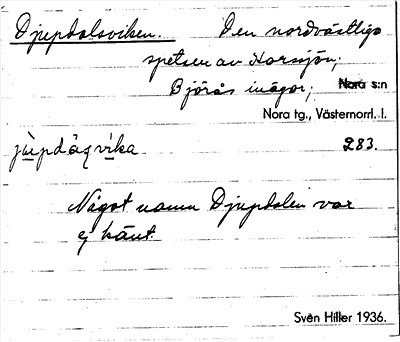 Djupdalsviken. Den nordvästliga
spetsen av Horssjön,
Björås inägor, Nora s:n
Nora tg., Västernorrl. l.
283.
Något namn Djupdalen var
ej känt.
Sven Hiller 1936.